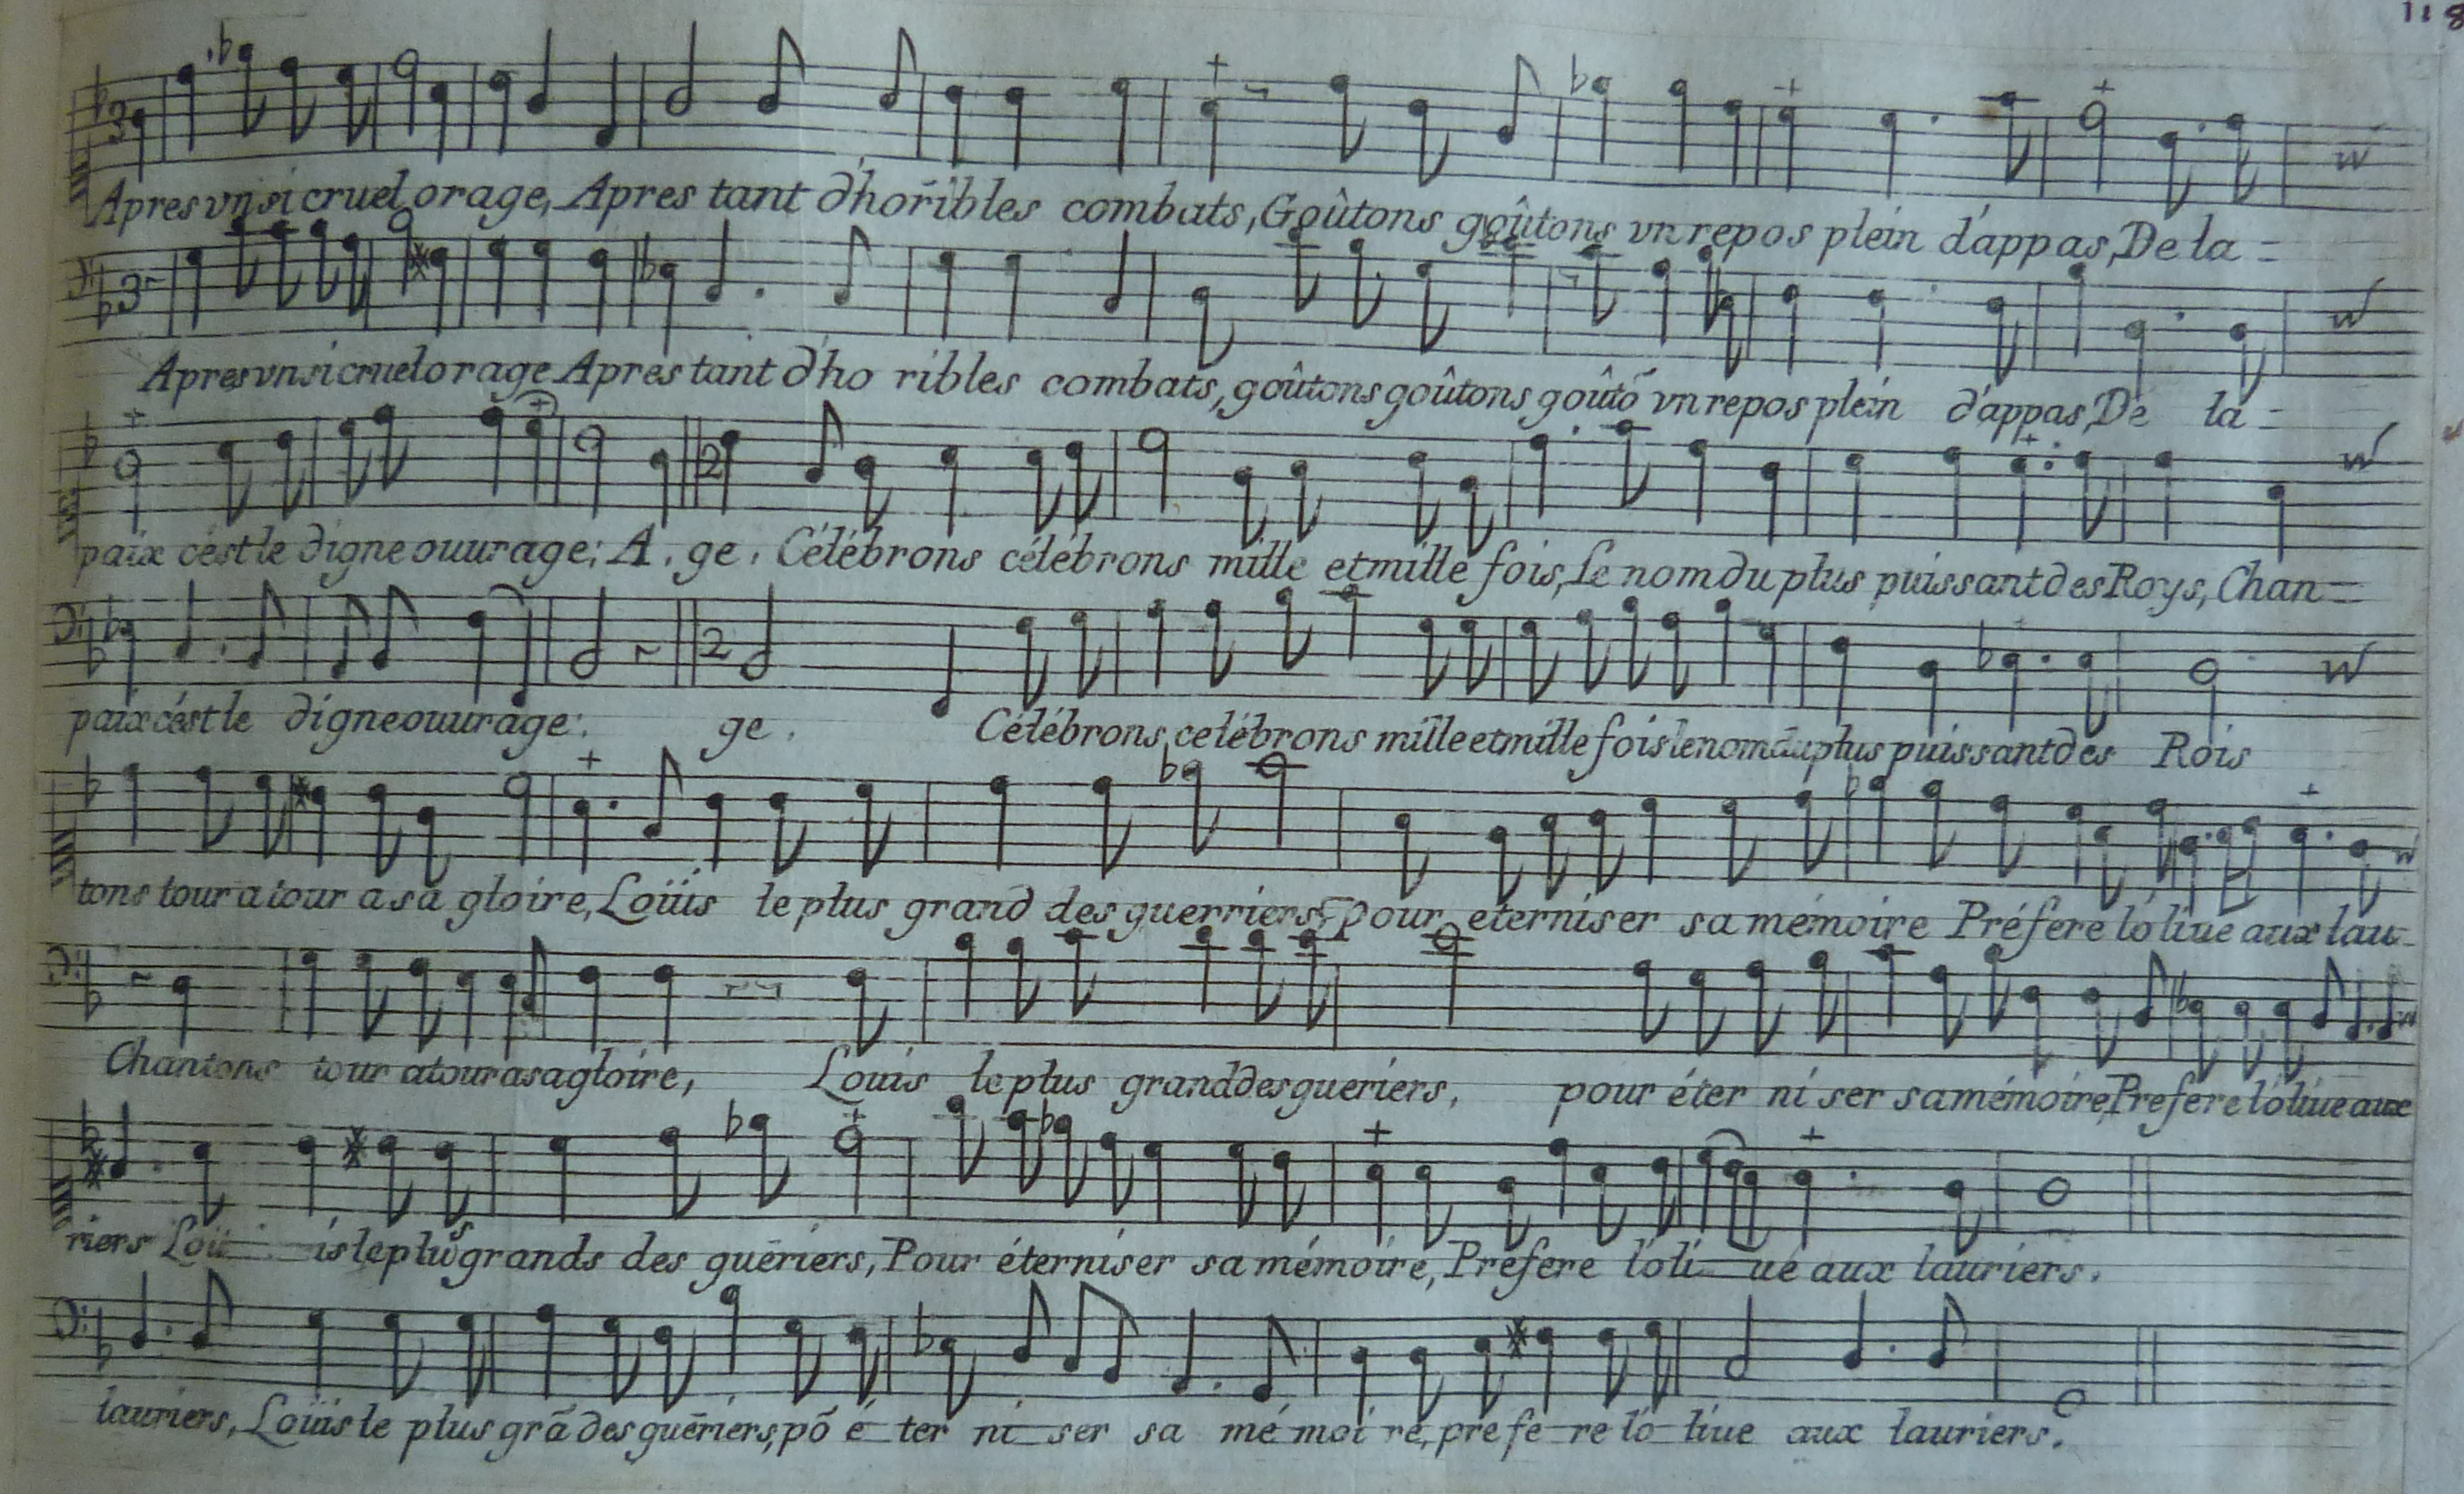 118
Apres vn si cruel orage, Apres tant d'horībles combats, Goûtons goûtons vn repos plein d'appas, De la =
Apres vn si cruel orage Apres tant d'ho ribles combats, goûtons goûtons goûtõ vn repos plein d'appas, De la =
paix cést le digne ouurage: A. ge. Célébrons célébrons mille et mille fois, Le nom du plus puissant des Roys, Chan=
paix cést le digne ouurage: ge. Célébrons, celébrons mille et mille fois le nom du plus puissant des Rois
tons tour a tour a sa gloire, Loüis le plus grand des guerriers, pour eterniser sa mémoire Préfere lo liue aux lau-
Chantons tour a tour a sa gloire, Louis le plus grand des gueriers, pour éter ni ser sa mémoire, Prefere lóliue aux
riers Loü is le plus grands des guēriers, Pour éterniser sa mémoire, Préfere lóli ue aux lauriers.
lauriers, Loüis le plus grã des guēriers, põ é ter ni ser sa mé moi re, pre fe re lo liue aux lauriers.